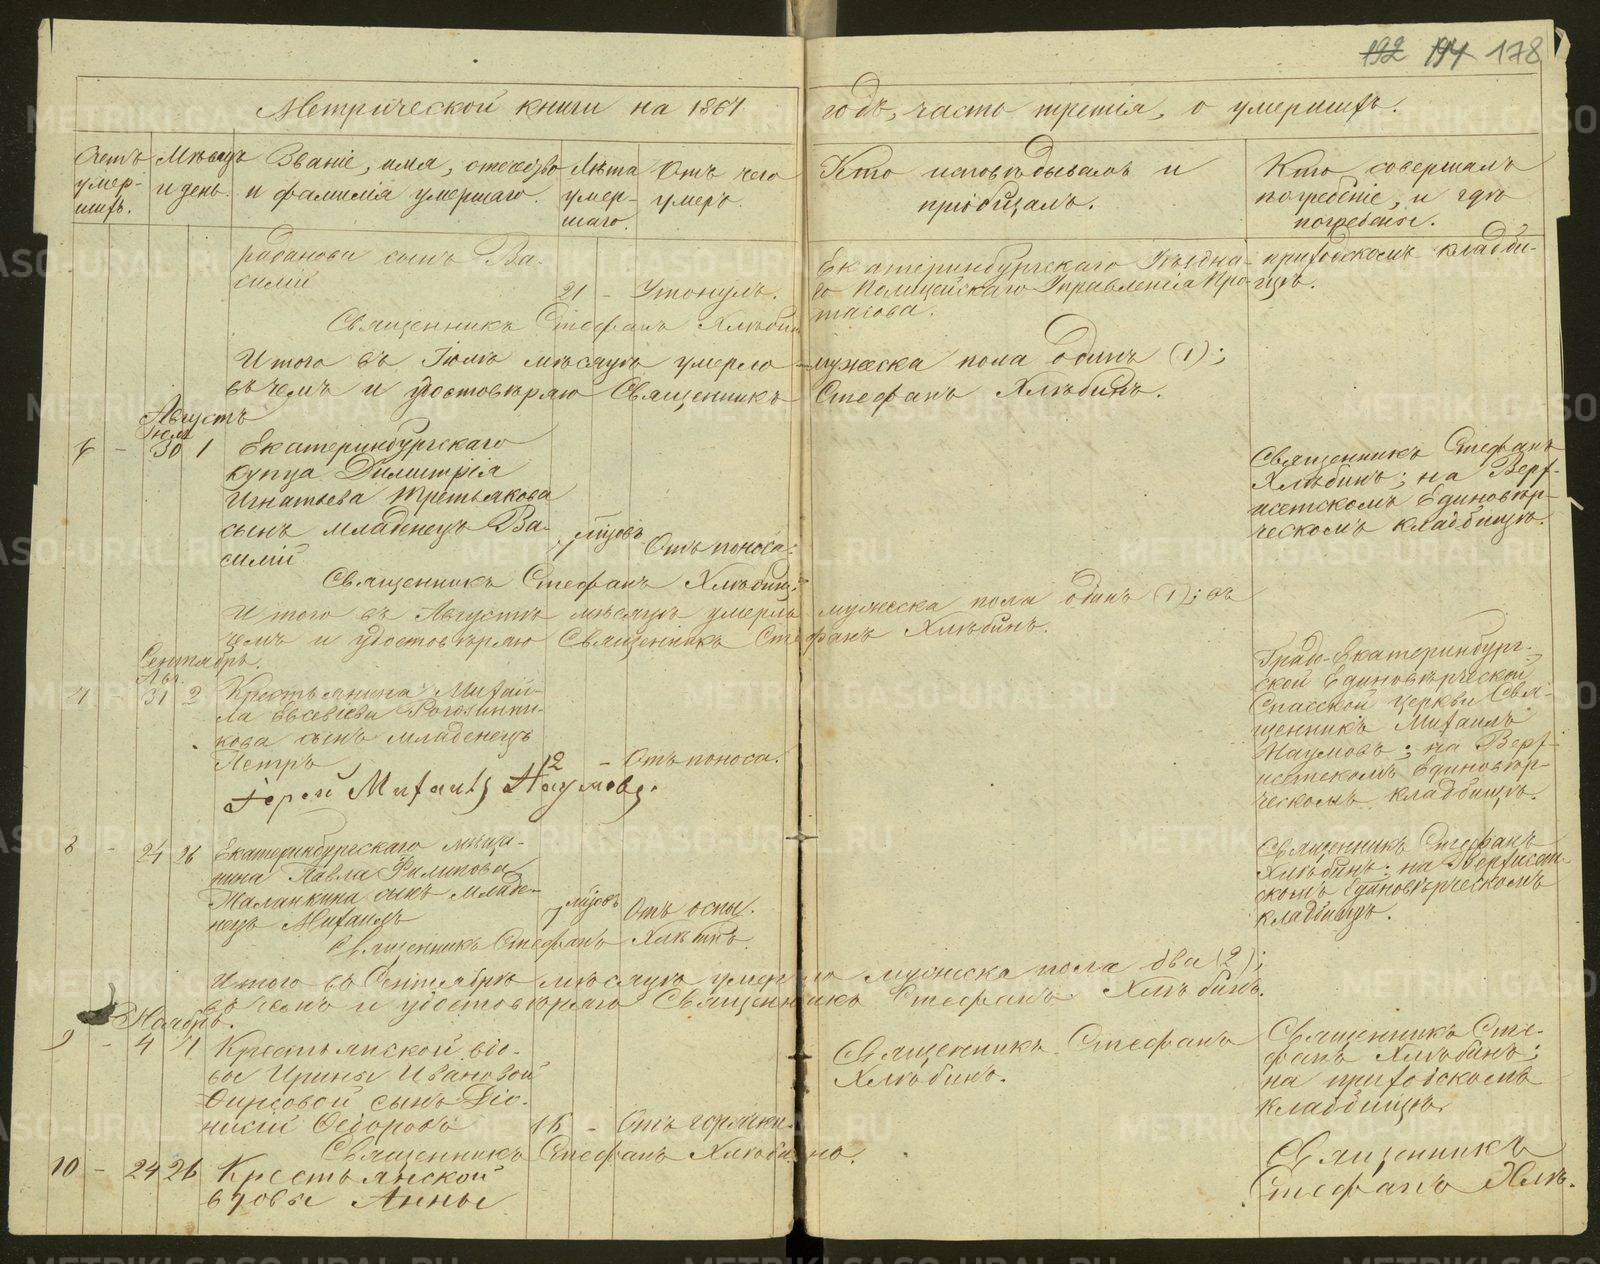 192 194 178
Метрической книги на 1864
годъ, часть третія, о умершихъ.
Счетъ умер-шихъ.
Мѣсяцъ и день.
Званіе, имя, отечество и фамилія умершаго.
Лѣта умер-шаго.
Отъ чего умеръ.
Кто исповѣдывалъ и пріобщалъ.
Кто совершалъ погребеніе, и гдѣ погребены.
сынъ Ва-
силій
21 - Утонулъ.
Екатеринбургскаго Уѣздна-
го Полицейскаго Управленія Про-
тасова.
приходскомъ кладби-
щѣ.
Священникъ Стефанъ Хлѣбинъ
Итого въ Іюлѣ мѣсяцѣ умерло мужеска пола одинъ (1);
въ чемъ и удостовѣряю Священникъ Стефанъ Хлѣбинъ.
Августъ
Іюля
6 - 30 1 Екатеринбургскаго
купца Димитрія
Игнатьева Третьякова
сынъ младенецъ Ва-
силій
Отъ поноса.
Священникъ Стефанъ
Хлѣбинъ; на Верх-
исетскомъ Единовѣр-
ческомъ кладбищѣ.
Священникъ Стефанъ Хлѣбинъ
Итого въ Августѣ мѣсяцѣ умерло мужеска пола одинъ (1); въ
чемъ и удостовѣряю Священникъ Стефанъ Хлѣбинъ.
Сентябрь.
Авг.
7 31 2 Крестьянина Михаи-
ла Евсевіева
кова сынъ младенецъ
Петръ
12 - Отъ поноса.
Градо-Екатеринбург-
ской Единовѣрческой
Спасской церкви Свя-
щенникъ Михаилъ
Наумовъ; на Верх-
исетскомъ Единовѣр-
ческомъ кладбищѣ.
Іерей Михаилъ Наумовъ.
8 - 24 26 Екатеринбургскаго мѣща-
нина Павла Филипова
Таланкина сынъ младе-
нецъ Михаилъ
Отъ оспы.
Священникъ Стефанъ
Хлѣбинъ; на Верхисет-
скомъ Единовѣрческомъ
кладбищѣ.
Священникъ Стефанъ Хлѣбинъ.
Итого въ Сентябрѣ мѣсяцѣ умерло мужеска пола два (2);
въ чемъ и удостовѣряю Священникъ Стефанъ Хлѣбинъ.
Ноябрь.
9 - 4 7 Крестьянской вдо-
вы Ирины Ивановой
сынъ Діо-
нисій Ѳедоровъ
16 - Отъ горячки.
Священникъ Стефанъ
Хлѣбинъ.
Священникъ Сте-
фанъ Хлѣбинъ;
на приходскомъ
кладбищѣ.
Священникъ Стефанъ Хлѣбинъ.
10 - 24 26 Крестьянской
вдовы Анны
Священникъ
Стефанъ Хлѣ-
METRIKI.GASO-URAL.RU